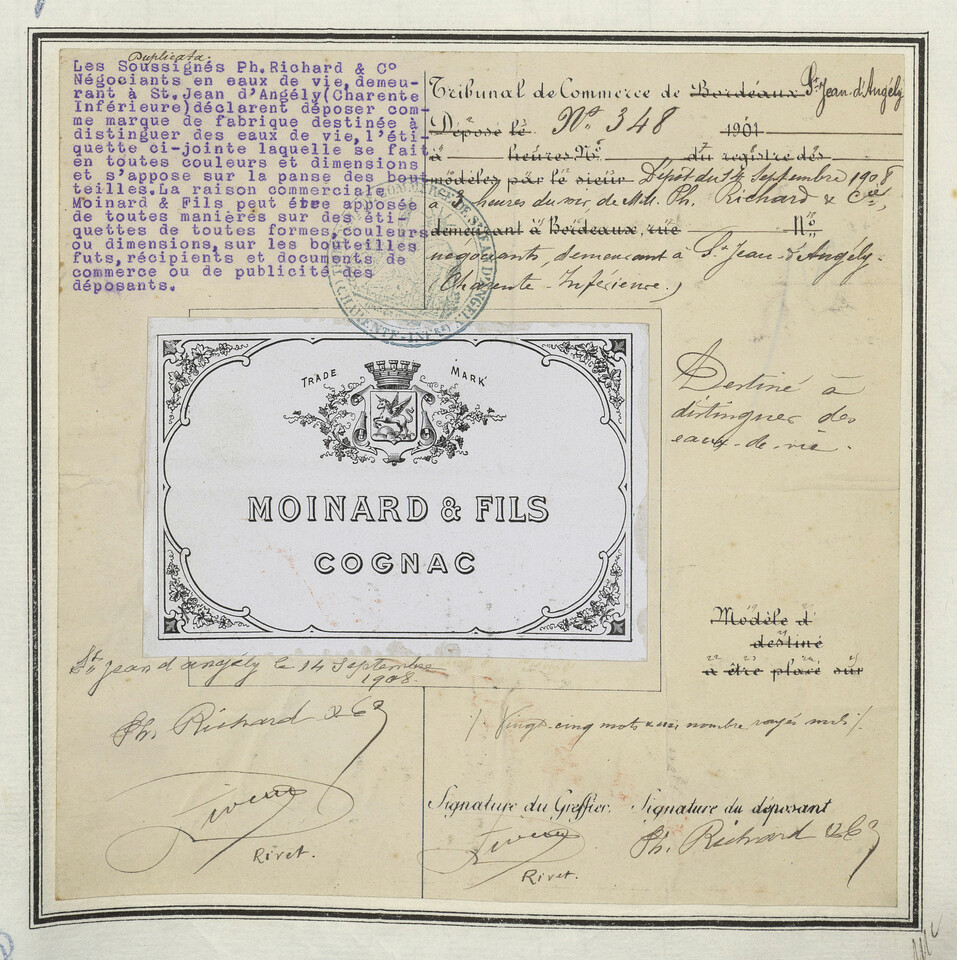 Duplicata.
Les Soussignés Ph.Richard & C°
Négociants en eaux de vie, demeu-
rant à St.Jean d'Angély(Charente
Inférieure)déclarent déposer com-
me marque de fabrique destinée à
distinguer des eaux de vie, l'éti-
quette ci-jointe laquelle se fait
en toutes couleurs et dimensions
et s'appose sur la panse des bou-
teilles.La raison commerciale
Moinard & Fils peut être apposée
de toutes manières sur des éti-
quettes de toutes formes, couleurs
ou dimensions, sur les bouteilles
futs, récipients et documents de
commerce ou de publicité des
déposants.
Tribunal de Commerce de Bordeaux St Jean d'Angély
Déposé le N° 348 1901
à heures N° du registre des
modèles par le sieur Dépôt du 14 Septembre 1908
à 3 heures du soir, de MM. Ph. Richard & Cie,
demeurant à Bordeaux, rue N°
négociants, demeurant à St Jean-d'Angély.
(Charente-Inférieure.)
TRADE MARK
MOINARD & FILS
COGNAC
Destiné à
distinguer des
eaux-de-vie.
Modèle d
destiné
à être placé sur
St Jean d'angély le 14 Septembre
1908.
Ph. Richard & C°
Rivet.
Vingt-cinq mots nombre rayés nuls
Signature du Greffier. Signature du déposant
Ph. Richard & C°
Rivet.